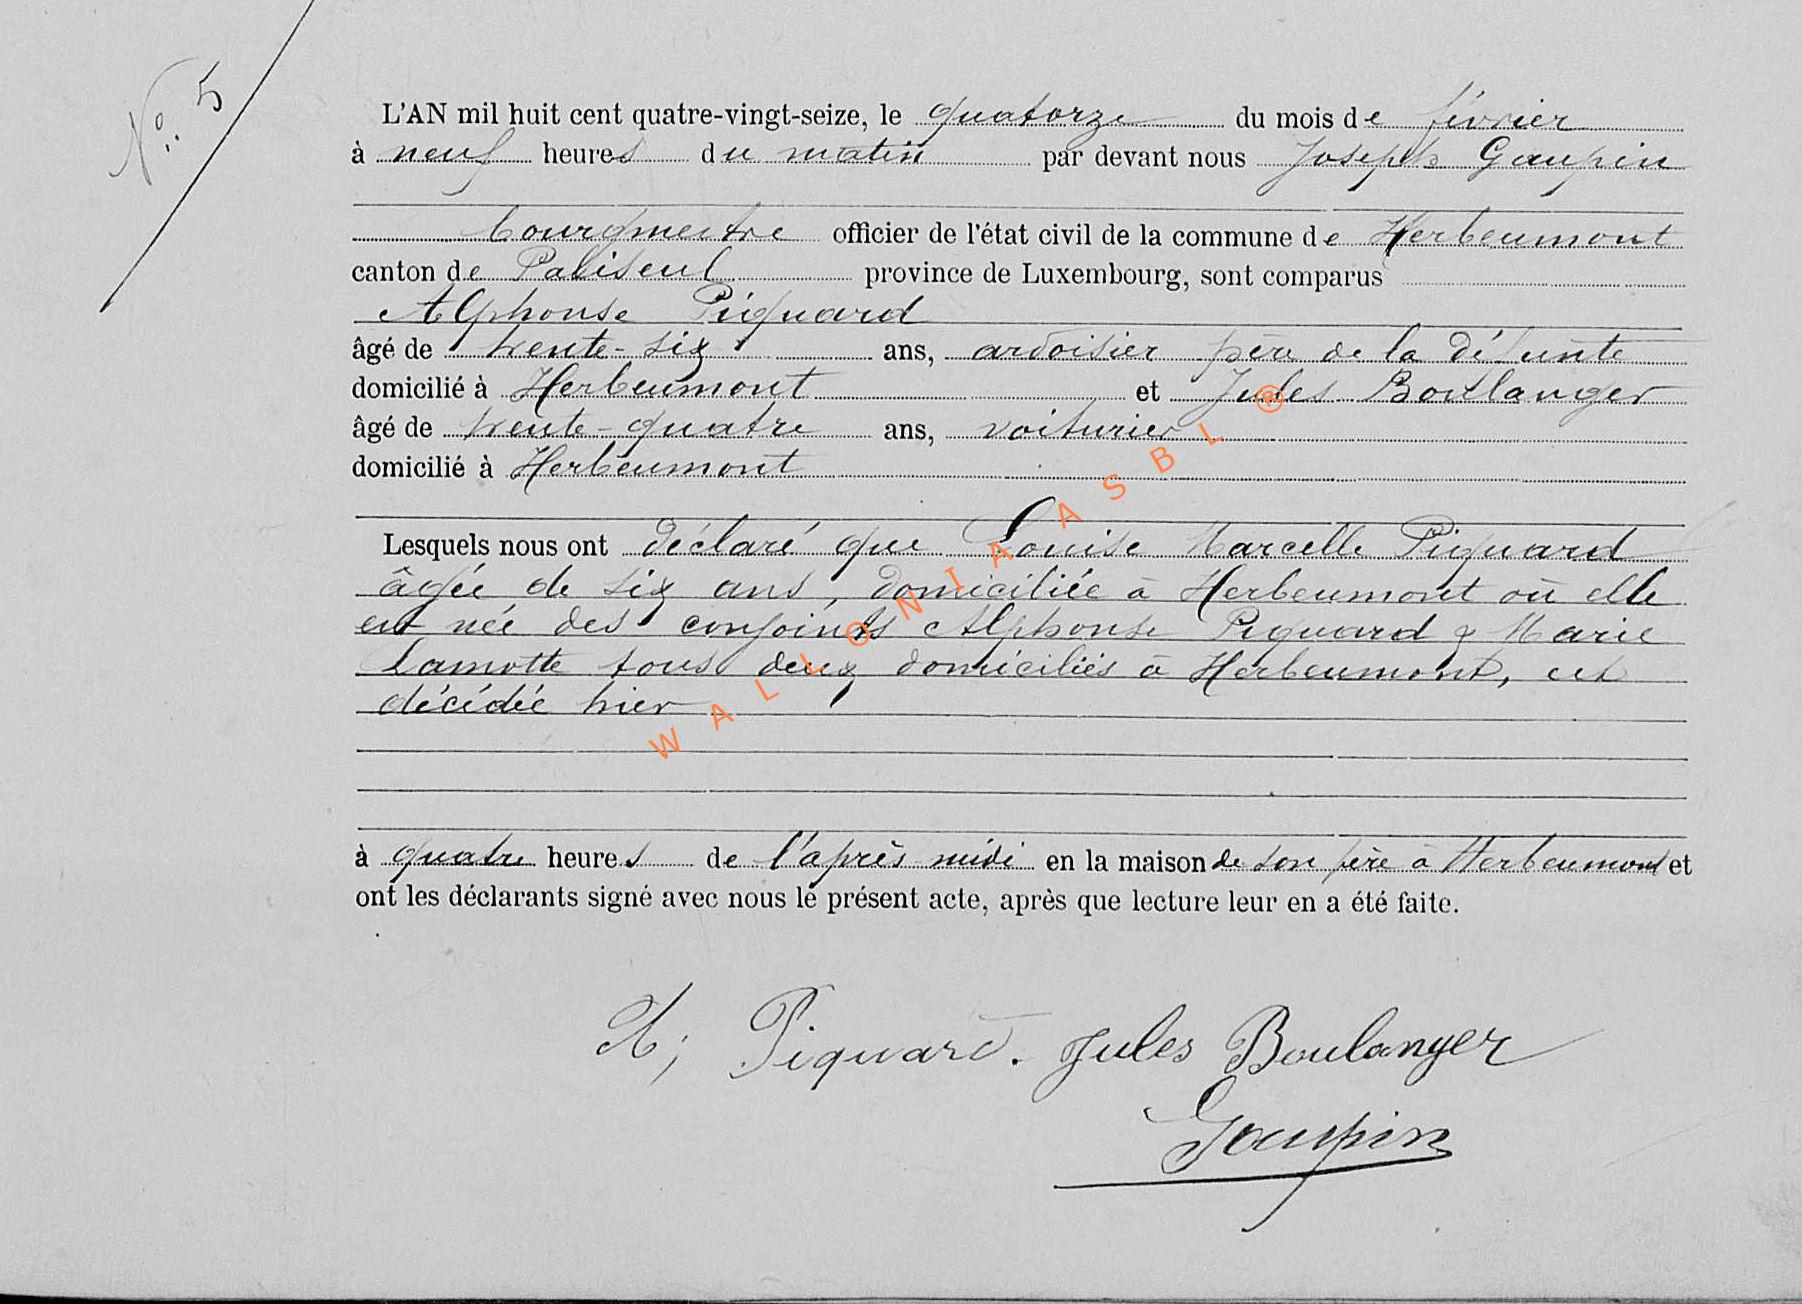 N°: 5
L'AN mil huit cent quatre-vingt-seize, le quatorze du mois de février
à neuf heures du matin par devant nous Joseph Gaupin
bourgmestre officier de l'état civil de la commune de Herbeumont
canton de Paliseul province de Luxembourg, sont comparus
Alphonse Piquard
âgé de trente-six ans, ardoisier père de la défunte
domicilié à Herbeumont et Jules Boulanger
âgé de trente-quatre ans, voiturier
domicilié à Herbeumont
Lesquels nous ont déclaré que Louise Marcelle Piquard
âgée de six ans, domiciliée à Herbeumont où elle
est née des conjoints Alphonse Piquard & Marie
Lamotte tous deux domiciliés à Herbeumont, est
décédée hier
à quatre heures de l'après midi en la maison de son père à Herbeumont et
ont les déclarants signé avec nous le présent acte, après que lecture leur en a été faite.
A; Piquard. Jules Boulanger
Gaupin
WALLONIA ASBL ®